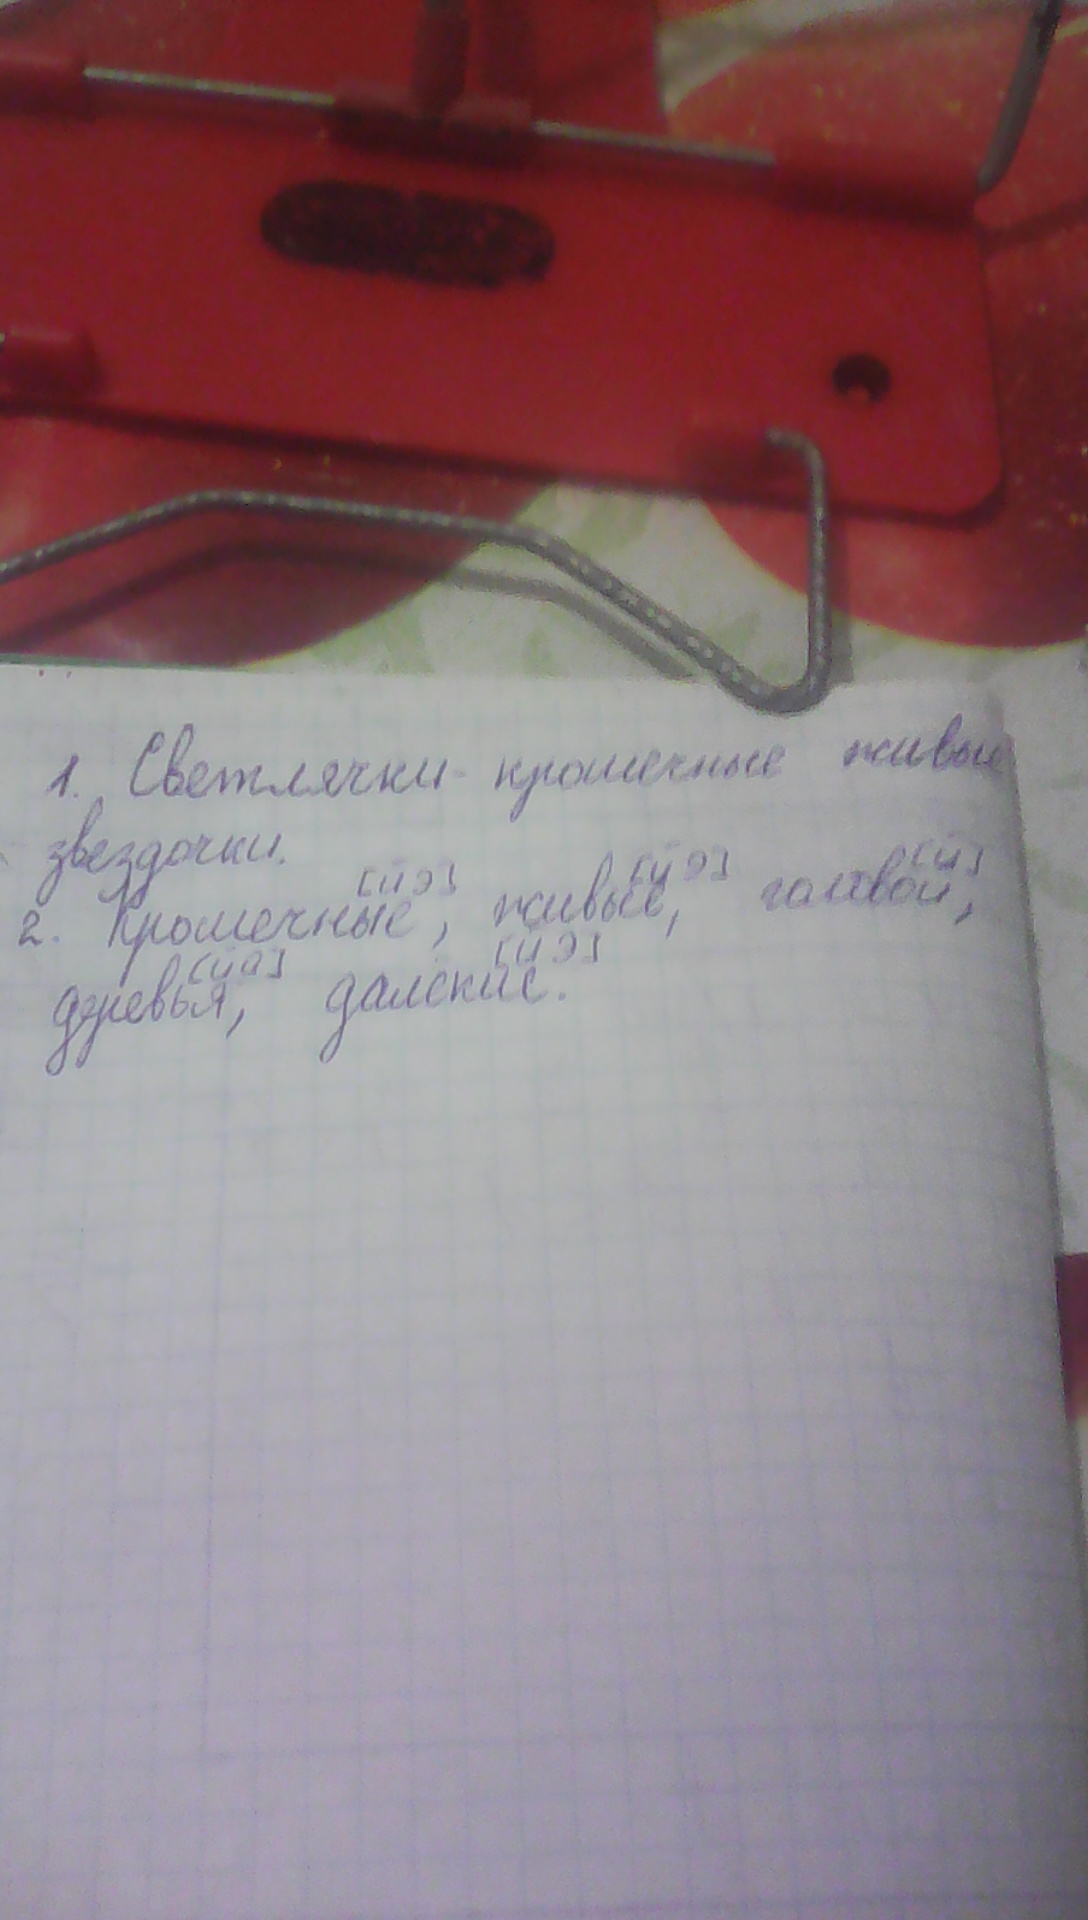 1. Светлячки - крошечные живые
звездочки.
[йэ] [йэ] [й]
2. Крошечные, живые, головой,
[йа] [йэ]
деревья, далёкие.